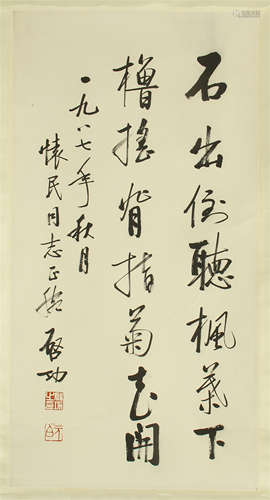 石出倒聽楓葉下
櫓搖背指菊花開
一九八七年秋月
懷民同志正腕 啟功